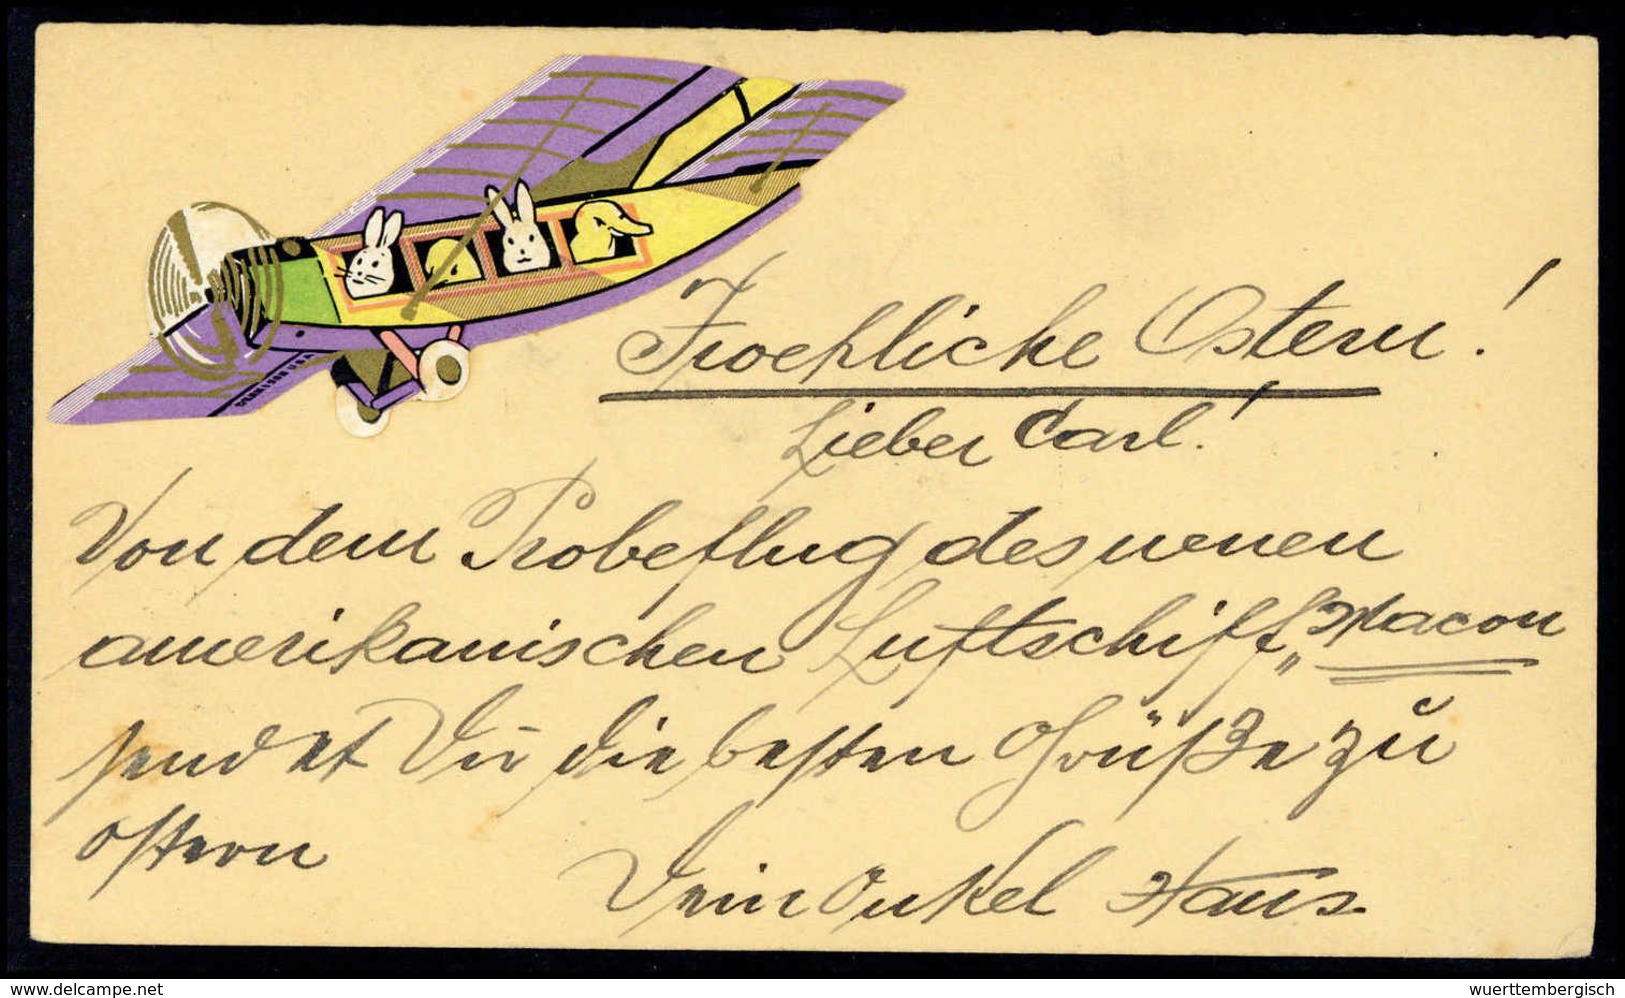 DENNISON U.S.A.
Froehliche Ostern!
Lieber Carl!
Von dem Probeflug des neuen
amerikanischen Luftschiff „Macon
sendet Dir die besten Grüße zu
Ostern
Dein Onkel Hans.
www.delcampe.net
wuerttembergisch